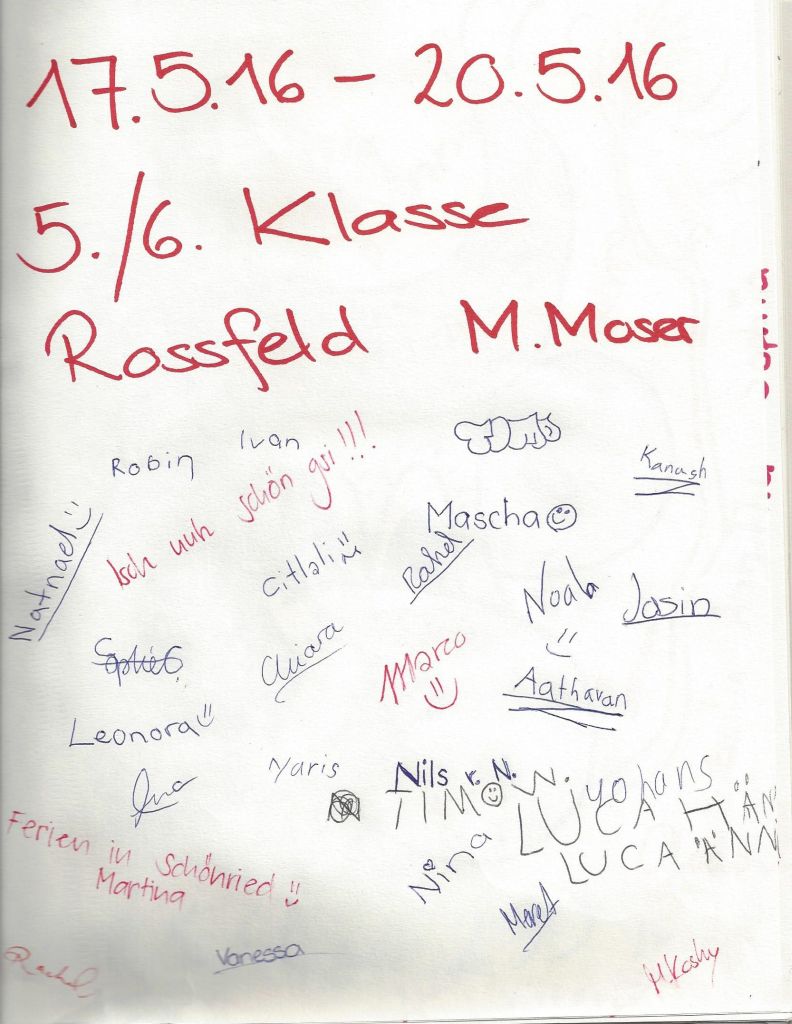 17.5.16 – 20.5.16
5./6. Klasse
Rossfeld M. Moser
Robin
Ivan
Kanash
Isch uuh schön gsi!!!
Mascha
Natnael
Citlali
Rahel
Noala
Jasin
Chiara
Marco
Aatharan
Leonora
Yaris
Nils v. N.
TIMO W.
yohans
LUCA HÄN
LUCA ÄNN
Nina
Ferien in Schönried
Martina
Maret
Vanessa
Rachel
M. Koshy